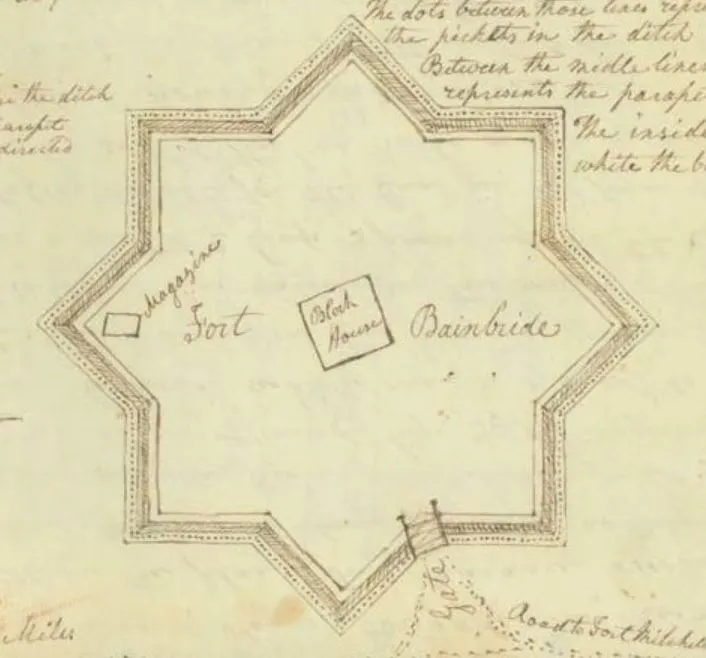 The dots between those lines
the pickets in the ditch
Between the midle lines
represents the
The inside
white the
in the ditch
directed
Magazine
Fort Bainbride
Block
House
Gate
Road to Fort Mitchell
Miles